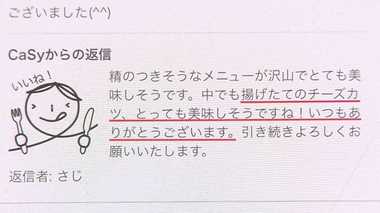 ございました(^^)
CaSyからの返信
いいね!
精のつきそうなメニューが沢山でとても美
味しそうです。中でも揚げたてのチーズカ
ツ、とっても美味しそうですね！いつもあ
りがとうございます。引き続きよろしくお
願いいたします。
返信者: さじ